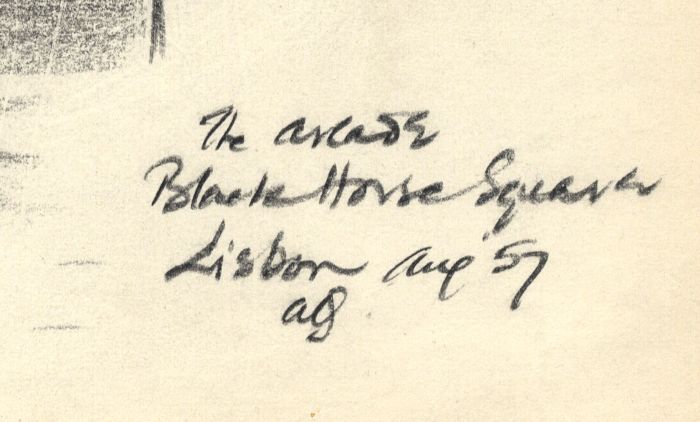 The arcade
Black Horse Square
Lisbon Aug '57